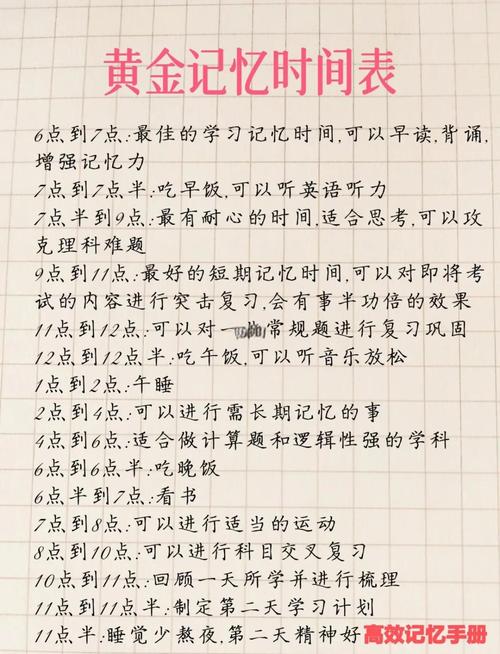 黄金记忆时间表
6点到7点:最佳的学习记忆时间,可以早读,背诵,
增强记忆力
7点到7点半:吃早饭,可以听英语听力
7点半到9点:最有耐心的时间,适合思考,可以攻
克理科难题
9点到11点:最好的短期记忆时间,可以对即将考
试的内容进行突击复习,会有事半功倍的效果
11点到12点:可以对一 常规题进行复习巩固
12点到12点半:吃午饭,可以听音乐放松
1点到2点:午睡
2点到4点:可以进行需长期记忆的事
4点到6点:适合做计算题和逻辑性强的学科
6点到6点半:吃晚饭
6点半到7点:看书
7点到8点:可以进行适当的运动
8点到10点:可以进行科目交叉复习
10点到11点:回顾一天所学并进行梳理
11点到11点半:制定第二天学习计划
11点半:睡觉少熬夜,第二天精神好
高效记忆手册